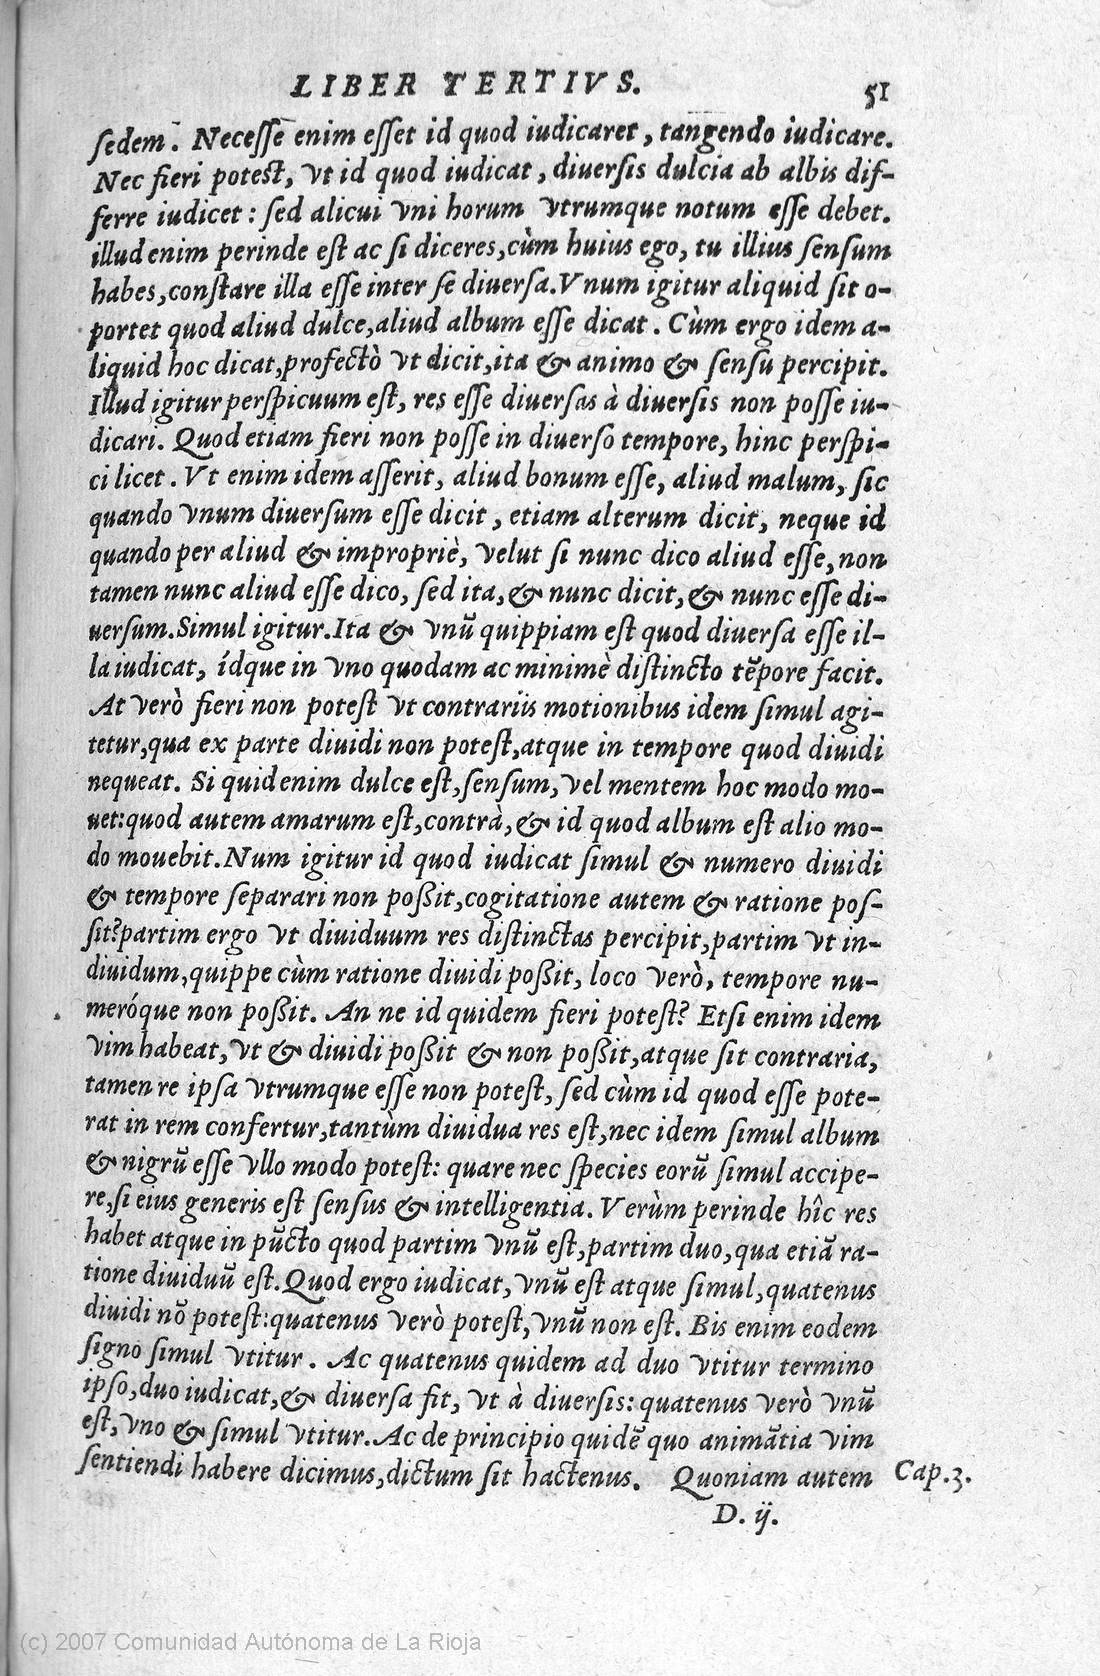 LIBER TERTIVS. 51
sedem. Necesse enim esset id quod iudicaret, tangendo iudicare.
Nec fieri potest, vt id quod iudicat, diuersis dulcia ab albis dif-
ferre iudicet: sed alicui vni horum vtrumque notum esse debet.
illud enim perinde est ac si diceres, cùm huius ego, tu illius sensum
habes, constare illa esse inter se diuersa. Vnum igitur aliquid sit o-
portet quod aliud dulce, aliud album esse dicat. Cùm ergo idem a-
liquid hoc dicat, profectò vt dicit, ita & animo & sensu percipit.
Illud igitur perspicuum est, res esse diuersas à diuersis non posse iu-
dicari. Quod etiam fieri non posse in diuerso tempore, hinc perspi-
ci licet. Vt enim idem asserit, aliud bonum esse, aliud malum, sic
quando vnum diuersum esse dicit, etiam alterum dicit, neque id
quando per aliud & impropriè, velut si nunc dico aliud esse, non
tamen nunc aliud esse dico, sed ita, & nunc dicit, & nunc esse di-
uersum. Simul igitur. Ita & vnũ quippiam est quod diuersa esse il-
la iudicat, ídque in vno quodam ac minimè distincto tẽpore facit.
At verò fieri non potest vt contrariis motionibus idem simul agi-
tetur, qua ex parte diuidi non potest, atque in tempore quod diuidi
nequeat. Si quid enim dulce est, sensum, vel mentem hoc modo mo-
uet: quod autem amarum est, contrà, & id quod album est alio mo-
do mouebit. Num igitur id quod iudicat simul & numero diuidi
& tempore separari non poßit, cogitatione autem & ratione pos-
sit? partim ergo vt diuiduum res distinctas percipit, partim vt in-
diuidum, quippe cùm ratione diuidi poßit, loco verò, tempore nu-
meróque non poßit. An ne id quidem fieri potest? Etsi enim idem
vim habeat, vt & diuidi poßit & non poßit, atque sit contraria,
tamen re ipsa vtrumque esse non potest, sed cùm id quod esse pote-
rat in rem confertur, tantùm diuidua res est, nec idem simul album
& nigrũ esse vllo modo potest: quare nec species eorũ simul accipe-
re, si eius generis est sensus & intelligentia. Verùm perinde hîc res
habet atque in pũcto quod partim vnũ est, partim duo, qua etiã ra-
tione diuiduũ est. Quod ergo iudicat, vnũ est atque simul, quatenus
diuidi nõ potest: quatenus verò potest, vnũ non est. Bis enim eodem
signo simul vtitur. Ac quatenus quidem ad duo vtitur termino
ipso, duo iudicat, & diuersa fit, vt à diuersis: quatenus verò vnũ
est, vno & simul vtitur. Ac de principio quidẽ quo animãtia vim
sentiendi habere dicimus, dictum sit hactenus. Quoniam autem Cap.3.
D. ij.
(c) 2007 Comunidad Autónoma de La Rioja